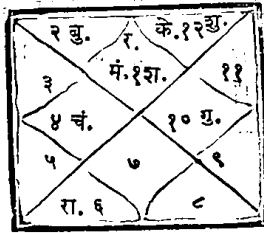 २ बु.
र.
के.१२शु.
मं.१श.
३
११
४ चं.
१० गु.
५
७
९
रा. ६
८